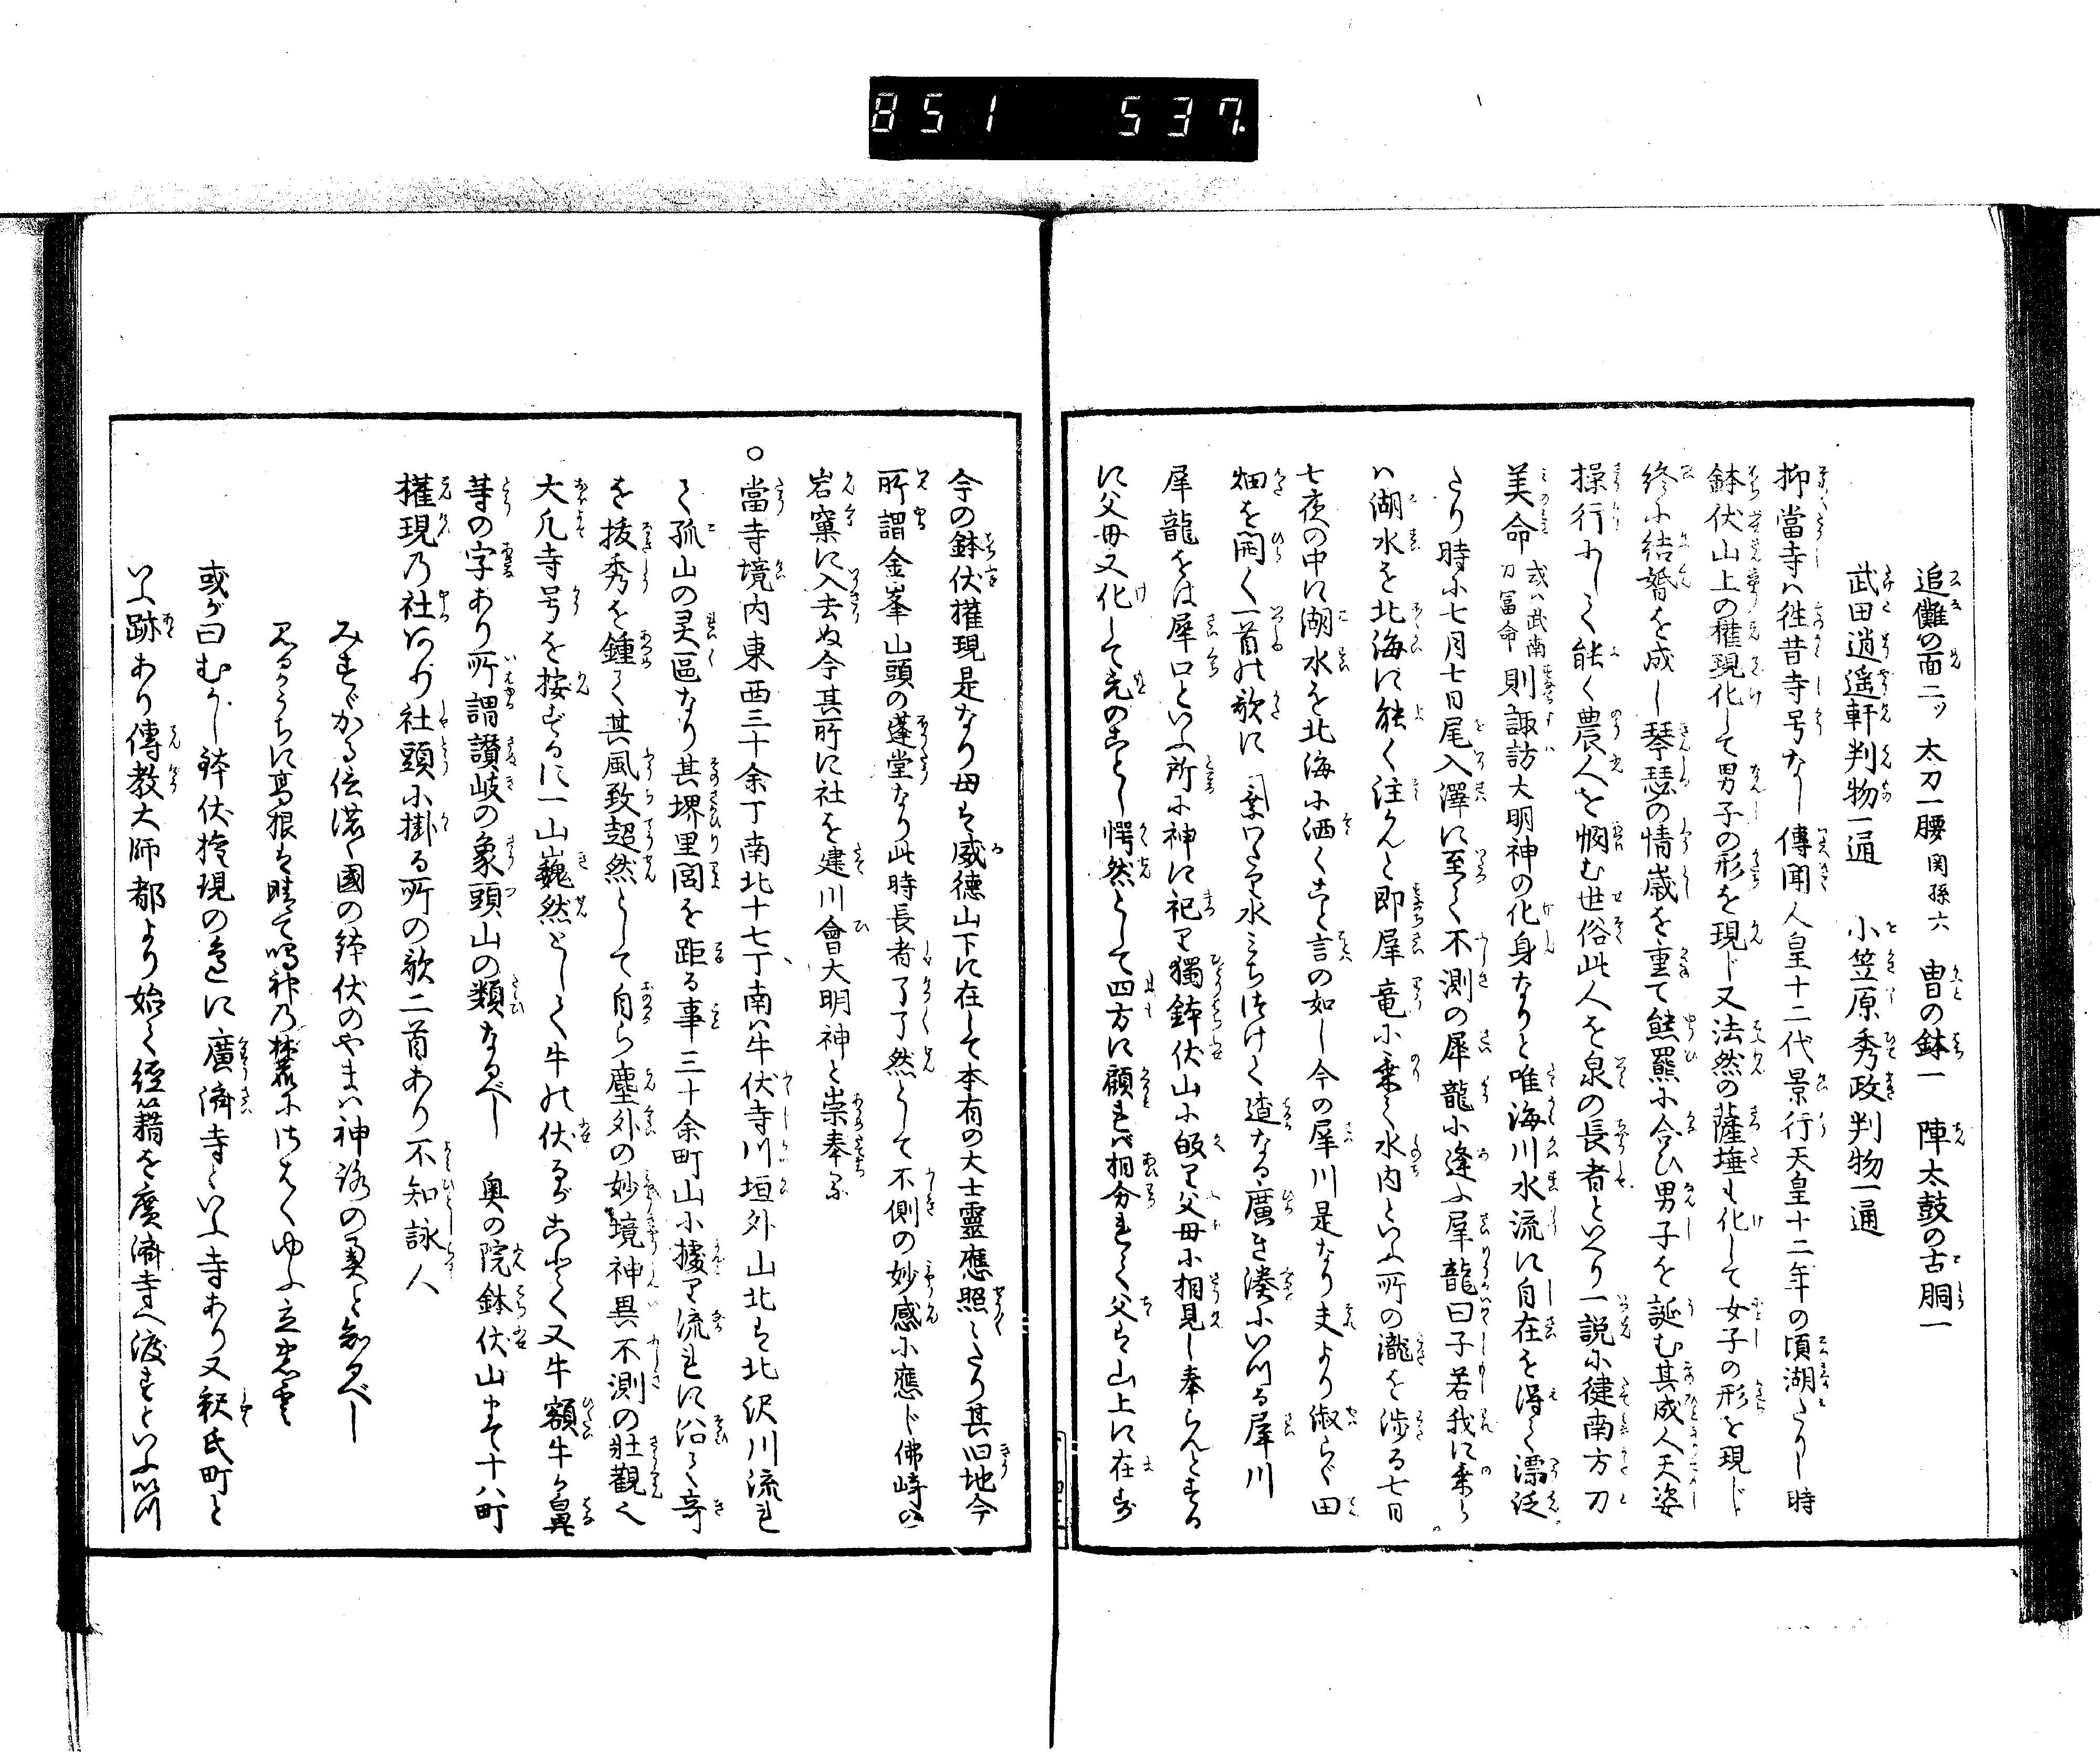 851 537
追儺の面二ッ 太刀一腰 関孫六 冑の鉢一 陣太鼓の古胴一
武田逍遥軒判物一通 小笠原秀政判物一通
抑當寺ハ徃昔寺号なし傳聞人皇十二代景行天皇十二年の頃湖たりし時
鉢伏山上の權現化して男子の形を現じ又法然の薩埵も化して女子の形を現じ
終に結婚を成し琴瑟の情歳を重て熊羆に合ひ男子を誕む其成人天姿
操行にして能く農人を憫む世俗此人を泉の長者といへり一説に健南方刀
美命 或ハ武南刀冨命 則諏訪大明神の化身なりと唯海川水流に自在を得て漂泛
たり時に七月七日尾入澤に至て不測の犀龍に逢ふ犀龍曰子若我に乗ら
ハ湖水を北海に能く注んと即犀竜に乗て水内といふ所の瀧を渉る七日
七夜の中に湖水を北海に洒くこと言の如し今の犀川是なり夫より淑らぐ田
畑を開く一首の歌に 乗わたり水みちつけて渣なる廣き湊にいづる犀川
犀龍をは犀口といふ所に神に祀り獨鉢伏山に皈り父母に相見し奉らんとする
に父母又化して元のことし愕然として四方に顧れば相分れて父は山上に在す
今の鉢伏權現是なり母は威德山下に在して本有の大士靈應照々たり其旧地今
所謂金峯山頭の蓬堂なり此時長者了了然として不側の妙感に應じ佛﨑の
岩窠に入去ぬ今其所に社を建川會大明神と崇奉る
○當寺境内東西三十余丁南北十七丁南ハ牛伏寺川垣外山北は北沢川流れ
て孤山の灵區なり其堺里閭を距る事三十余町山に據り流れに沿て竒
を抜秀を鍾て其風致超然として自ら塵外の妙境神異不測の壮觀く
大凡寺号を按ずるに一山巍然として牛の伏るがことく又牛額牛が鼻
等の字あり所謂讃岐の象頭山の類なるべし 奥の院鉢伏山まで十八町
權現乃社あり社頭に掛る所の歌二首あり不知詠人
みすゞかる信濃國の鉢伏のやまハ神跡の奠と知るべし
見るうちに高根は晴て鳴神乃麓にはえてゆふ立の雲
或が曰むかし鉢伏權現の邊に廣濟寺といふ寺あり又釈氏町と
いふ跡あり傳教大師都より始て經籍を廣濟寺へ渡すといふ以川